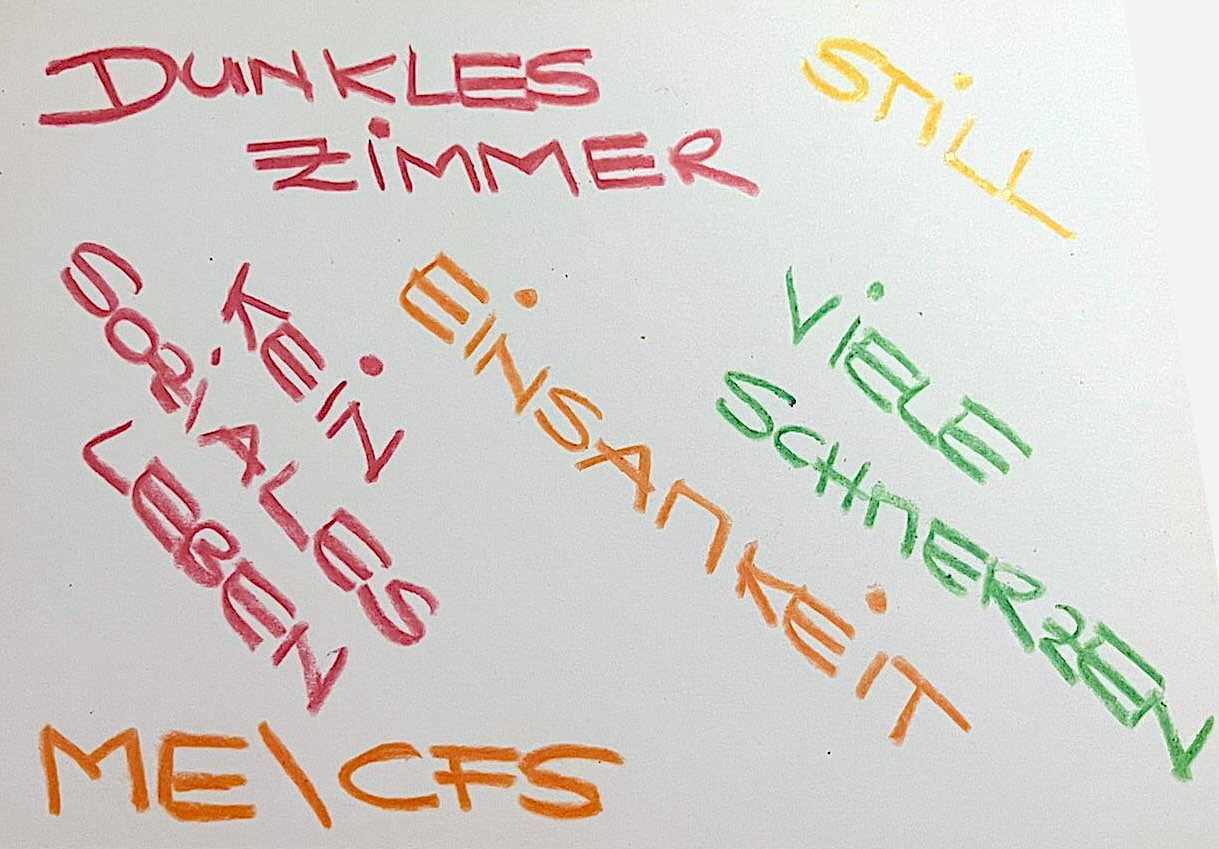 DUNKLES
ZIMMER
STILL
KEIN
SOZIALES
LEBEN
EINSAMKEIT
VIELE
SCHMERZEN
ME\CFS